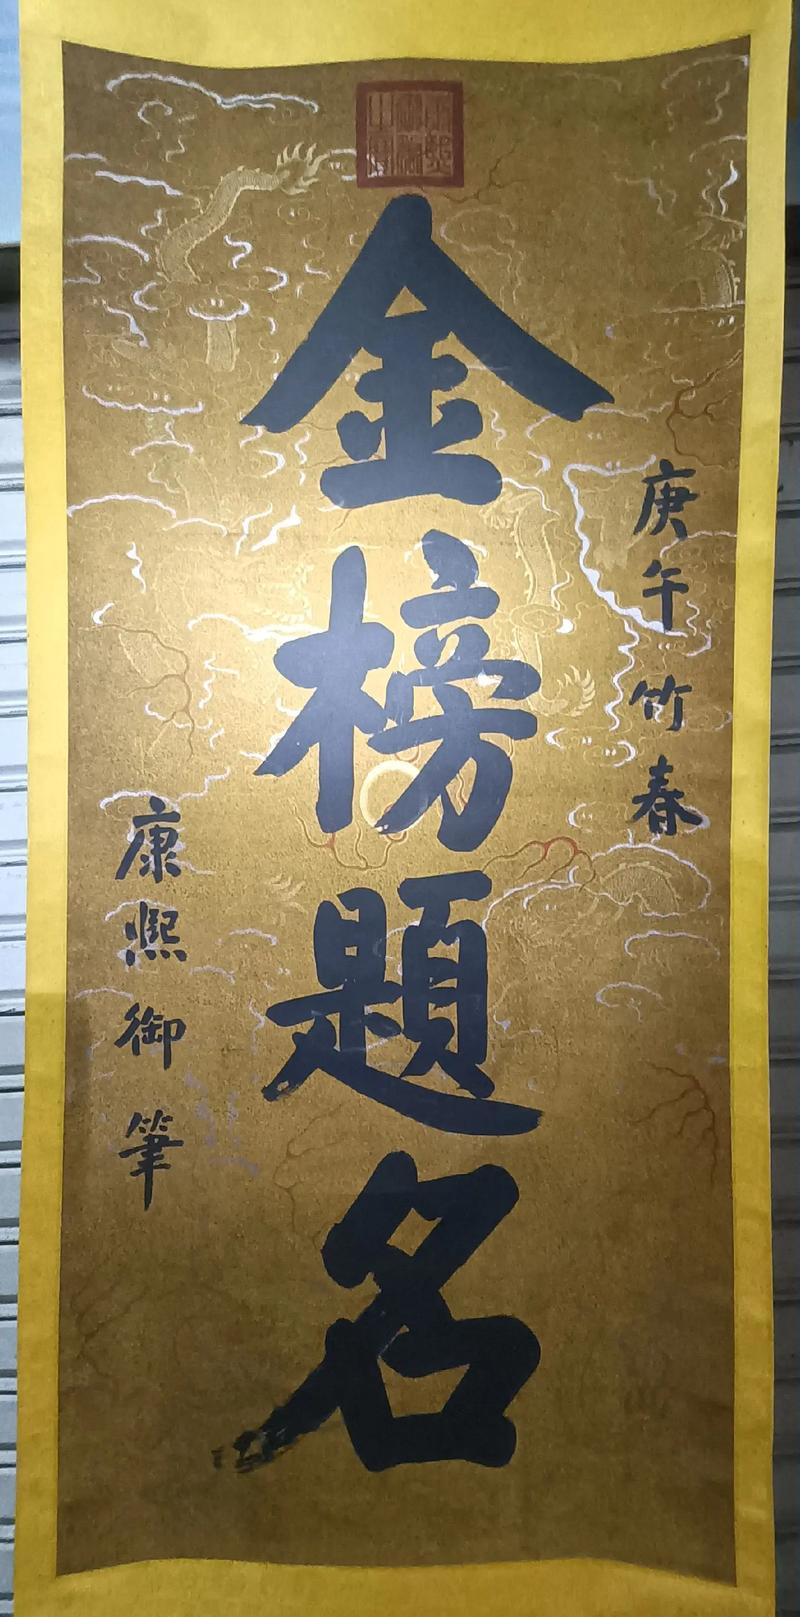 庚午竹春
金榜題名
康熙御筆